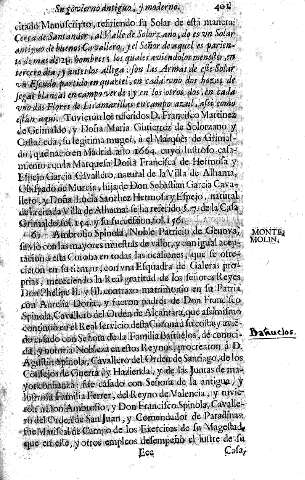 Su govierno antiguo, y moderno. 401
citado Manuscripto, refiriendo su Solar de esta manera:
Cerca de Santander, al Valle de Solorzano, do es un Solar
antiguo de buenos Cavalleros, y el Señor de aquel es parien-
te mas de
tercero dia, y antes los allega: son las Armas de este Solar
un Escudo partido en quatro, en cada uno dos hozes de
segar blancas en campo verde; y en los otros dos, en cada
uno dos Flores de Lis amarillas en campo azul, assi como
están aqui. Tuvieron los referidos D. Francisco Martinez
de Grimaldo, y Doña Maria Gutierrez de Solorzano y
Castañeda, su legitima muger, à el Marquès de Grimal-
do, que nació en Madrid año 1664. cuyo ilustre casa-
miento con la Marquesa Doña Francisca de Hermosa y
Espejo Garcia Cavallero, natural de la Villa de Alhama,
Obispado de Murcia, hija de Don Sebastian Garcia Cava-
llero, y Doña Lucia Sanchez Hermosa y Espejo, natural
de la citada Villa de Alhama se ha referido §. 7. de la Casa
Grimaldos fol. 154. y su sucession fol. 156.
67. Ambrosio Spinola, Noble Patricio de Genova,
sirviò con las mayores muestras de valor, y con igual acep-
tacion à esta Corona en todas las ocasiones, que se ofre-
cieron en su tiempo, con una Esquadra de Galeras pro-
prias, mereciendo la Real gratitud de los señores Reyes
Don Phelipe II. y III. contraxo matrimonio en su Patria
con Aurelia Doria, y fueron padres de Don Francisco
Spinola, Cavallero del Orden de Alcantara, que assimismo
continuò en el Real servicio de esta Corona à su costa, y estan-
do casado con Señora de la Familia Bañuelos, de conoci-
da, y notoria Nobleza en estos Reynos, procrearon à D.
Agustin Spinola, Cavallero del Orden de Santiago, de los
Consejos de Guerra y Hazienda, y de las Juntas de ma-
yor confianza: fue casado con Señora de la antigua, y
ilustre Familia Ferrer, del Reyno de Valencia, y tuvie-
ron à Don Ambrosio, y Don Francisco Spinola, Cavalle-
ro del Orden de San Juan, y Comendador de Paradinas:
fue Mariscal de Campo de los Exercitos de su Magestad,
que en esto, y otros empleos desempeñò el lustre de su
Eee Casa,
MONTE-
MOLIN.
Bañuelos.